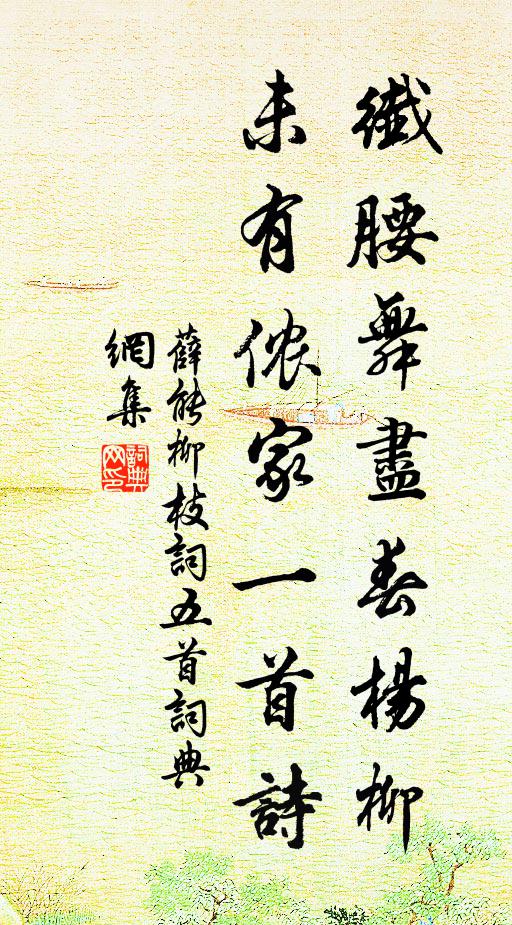 纖腰舞盡春楊柳
未有侬家一首詩
薛能柳枝詞五首詞典
網集
詞典
网印